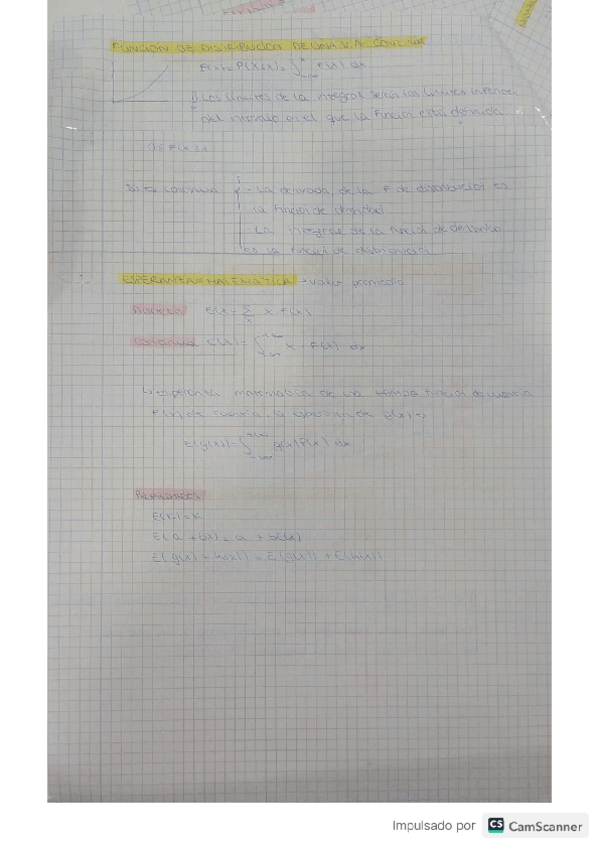 FUNCIÓN DE DISTRIBUCIÓN DE UNA V.A. CONTINUA
F(x) = P(X≤x) = ∫ -∞ x F(x) dx
Los límites de la integral serán los límites inferior
del intervalo en el que la función está definida.
Si es continua { - La derivada de la F de distribución es
la función de densidad
- La integral de la función de densidad
es la función de distribución
ESPERANZA MATEMÁTICA → valor promedio
Discreta E(x) = Σ x x · F(x)
Continua E(x) = ∫ -∞ +∞ x · F(x) dx
↳ esperanza matemática de una función de
F(x) de , la esperanza de g(x) =>
E(g(x)) = ∫ -∞ +∞ g(x) F(x) dx
Propiedades
E(K) = K
E(a + bx) = a + bE(x)
E(g(x) + h(x)) = E(g(x)) + E(h(x))
Impulsado por CS CamScanner